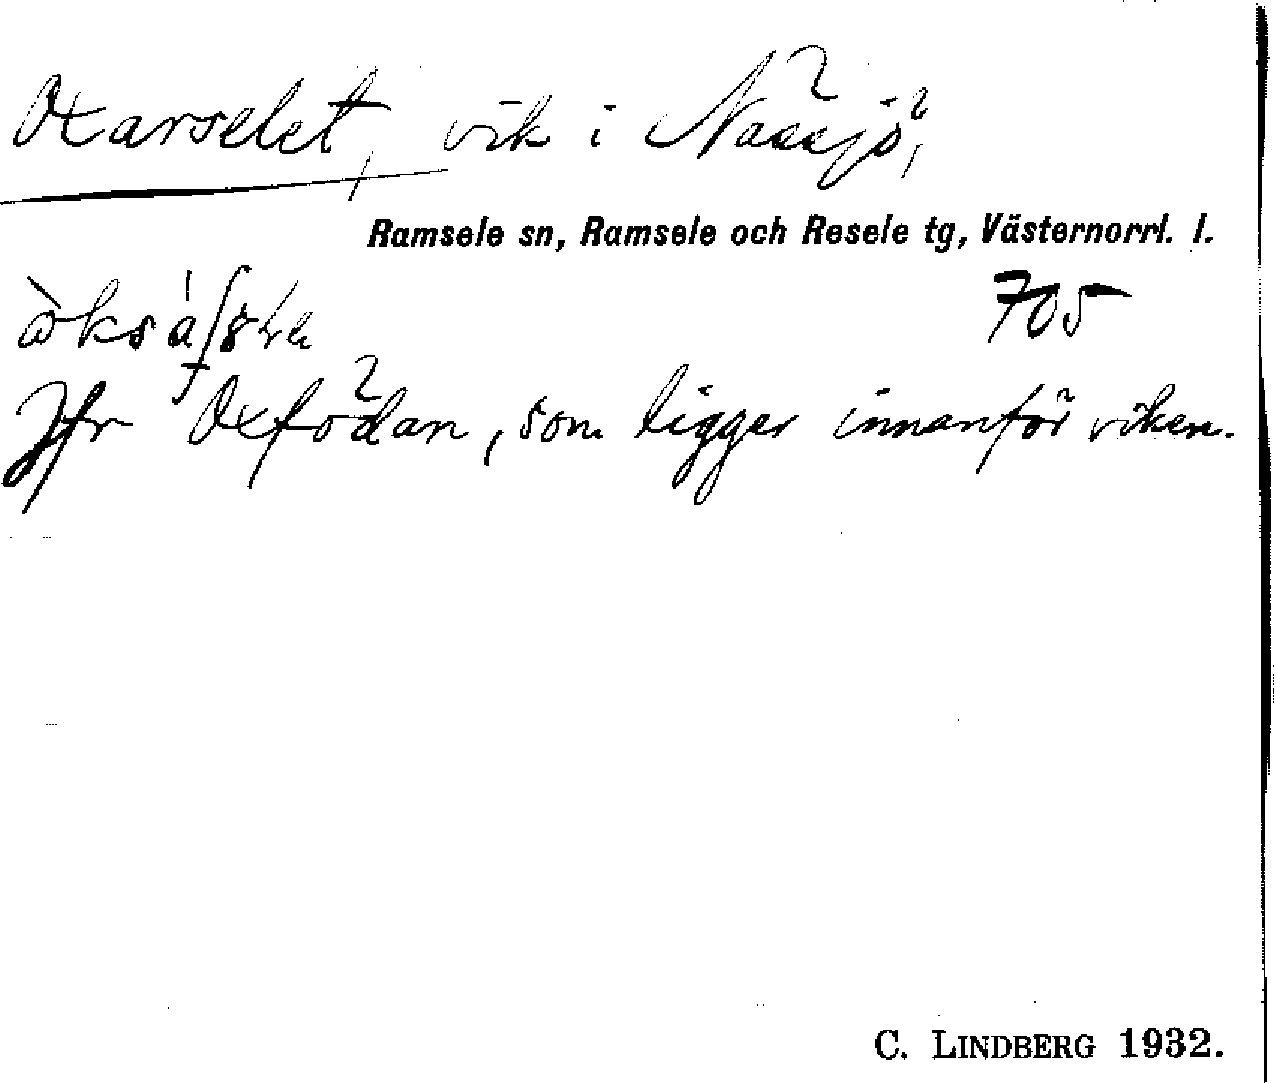 Oxarselet, vik i Nässjö,
Ramsele sn, Ramsele och Resele tg, Västernorrl. l.
705
Jfr Oxfödan, som ligger innanför viken.
C. LINDBERG 1932.